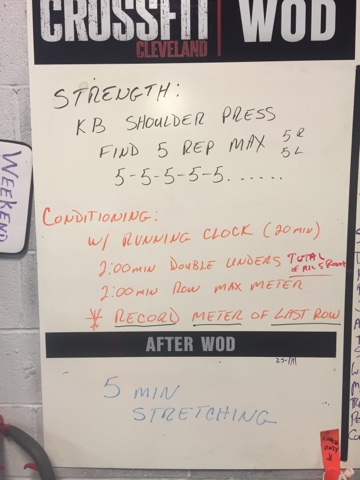 CROSSFIT
CLEVELAND
WOD
STRENGTH:
KB SHOULDER PRESS
FIND 5 REP MAX 5R
5L
5-5-5-5-5.......
WEEKEND
CONDITIONING:
W/ RUNNING CLOCK (20 MIN)
2:00 MIN DOUBLE UNDERS TOTAL
OF ALL 5 ROUNDS
2:00 MIN ROW MAX METER
* RECORD METER OF LAST ROW
AFTER WOD
5 MIN
STRETCHING